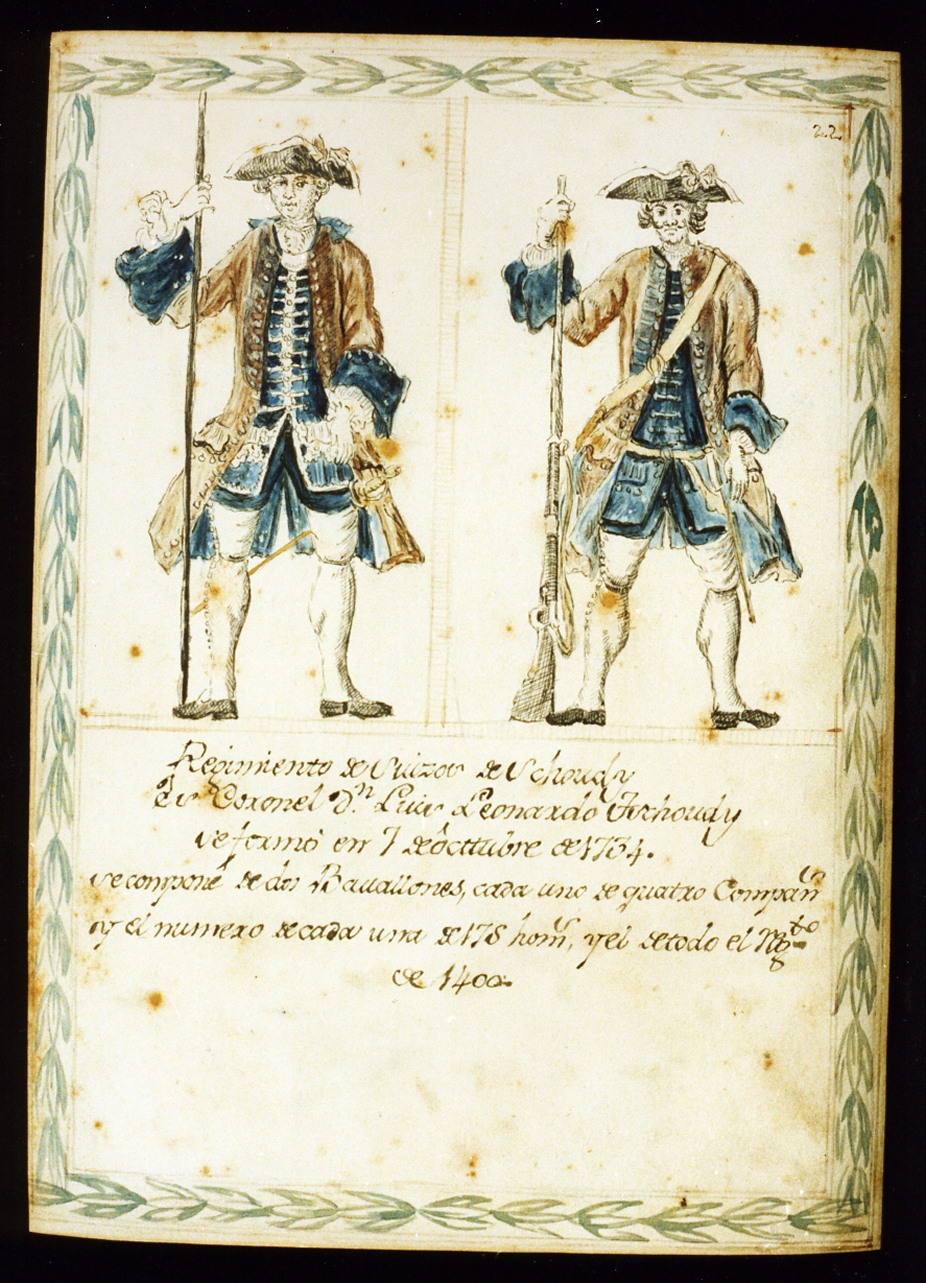 22
Regimiento de Suizos de Schoudy
es Coronel D.n Luis Leonardo Tschoudy
se formó en 7 de Octtubre de 1734.
se compone de dos Batallones, cada uno de quatro Compañ.s
y el numero de cada una de 178 hom.s, y el de todo el Rg.to
de 1400.